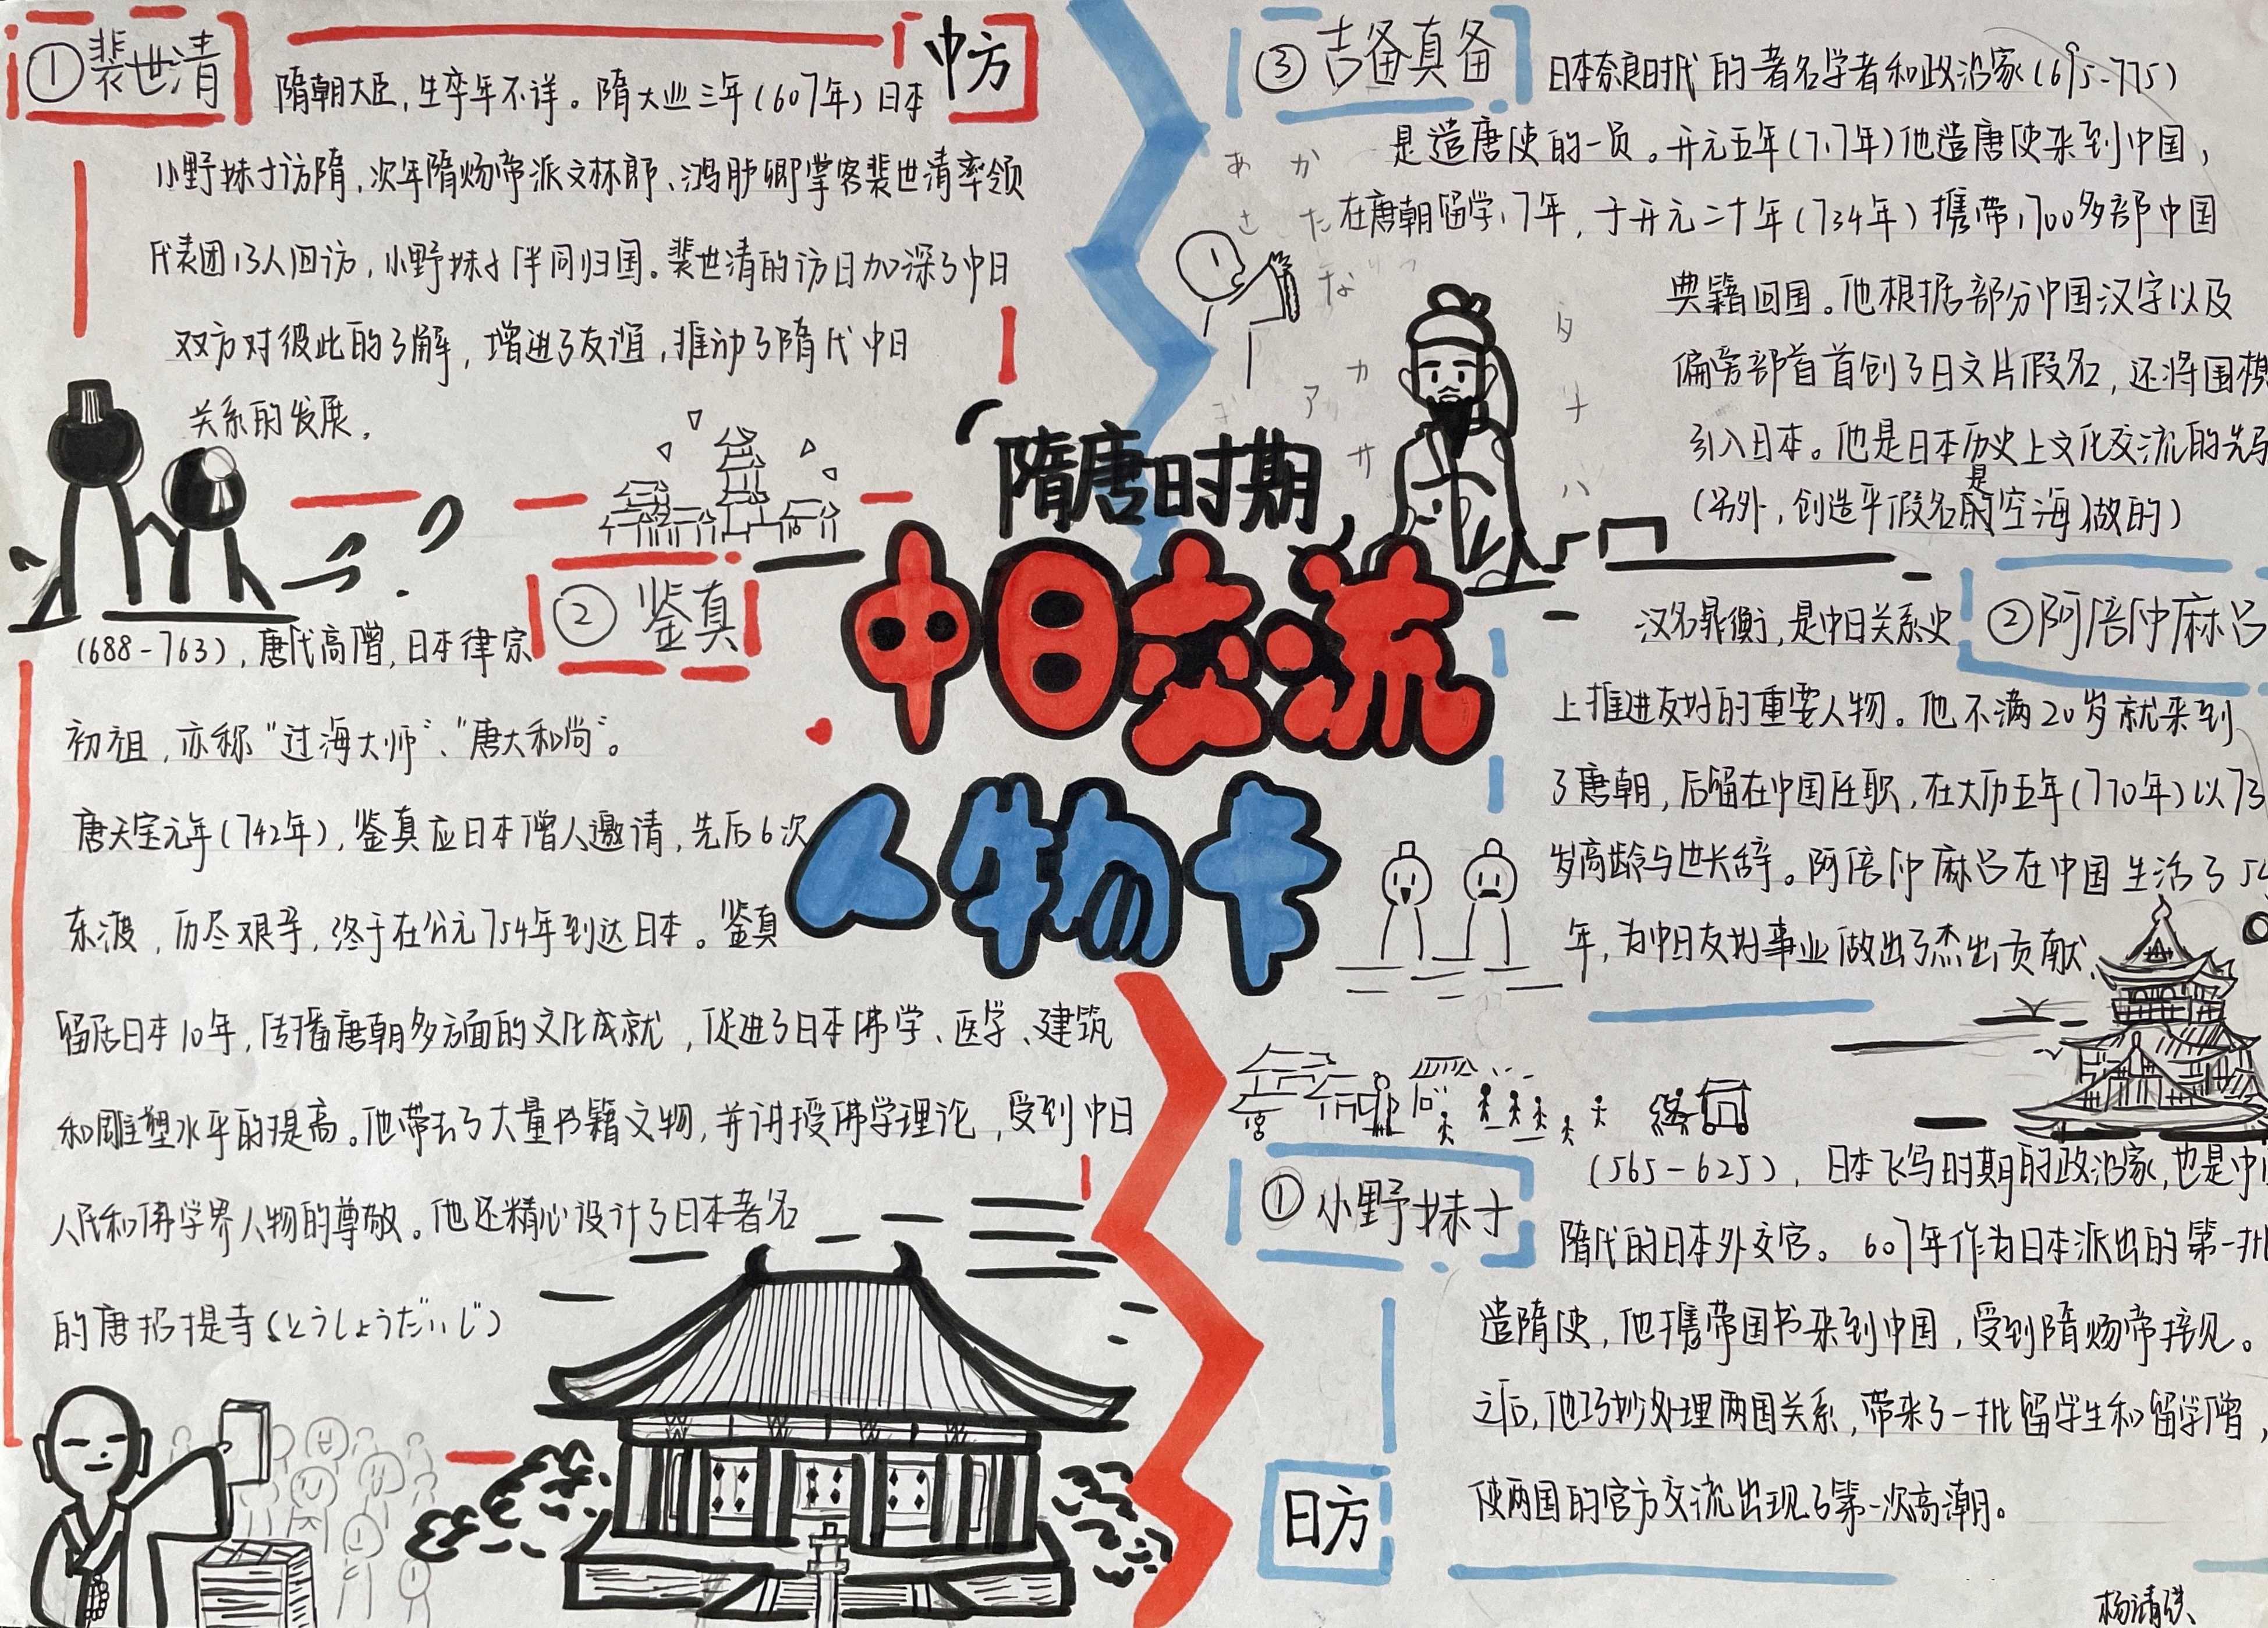 ①裴世清
中方
隋朝大臣，生卒年不详。隋大业三年(607年)日本
小野妹子访隋，次年隋炀帝派文林郎、鸿胪卿掌客裴世清率领
代表团13人回访，小野妹子伴同归国。裴世清的访日加深了中日
双方对彼此的了解，增进了友谊，推动了隋代中日
关系的发展。
②鉴真
(688-763)，唐代高僧，日本律宗
初祖，亦称“过海大师”、“唐大和尚”。
唐天宝元年(742年)，鉴真应日本僧人邀请，先后6次
东渡，历尽艰辛，终于在公元754年到达日本。鉴真
留居日本10年，传播唐朝多方面的文化成就，促进了日本佛学、医学、建筑
和雕塑水平的提高。他带去了大量书籍文物，并讲授佛学理论，受到中日
人民和佛学界人物的尊敬。他还精心设计了日本著名
的唐招提寺(とうしょうだいじ)
隋唐时期
中日交流
人物卡
③吉备真备
日本奈良时代的著名学者和政治家(695-775)
是遣唐使的一员。开元五年(717年)他遣唐使来到中国，
在唐朝留学17年，于开元二十年(734年)携带1700多部中国
典籍回国。他根据部分中国汉字以及
偏旁部首首创了日文片假名，还将围棋
引入日本。他是日本历史上文化交流的先
(另外，创造平假名的是空海做的)
あ か
さ た
な
カ
ア
サ
タ
ナ
ハ
②阿倍仲麻吕
汉名晁衡，是中日关系史
上推进友好的重要人物。他不满20岁就来到
了唐朝，后留在中国任职，在大历五年(770年)以73
岁高龄与世长辞。阿倍仲麻吕在中国生活了54
年，为中日友好事业做出了杰出贡献。
①小野妹子
(565-625)，日本飞鸟时期的政治家，也是中
隋代的日本外交官。607年作为日本派出的第一批
遣隋使，他携带国书来到中国，受到隋炀帝接见。
之后，他巧妙处理两国关系，带来了一批留学生和留学僧，
使两国的官方交流出现了第一次高潮。
日方